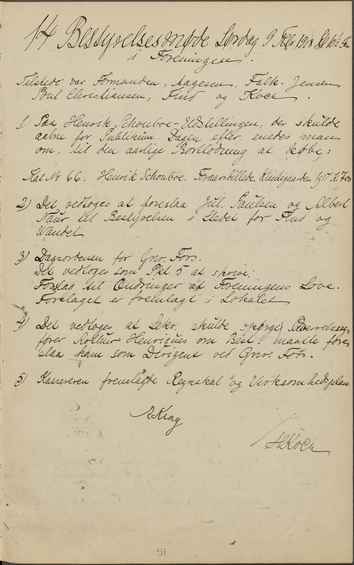 14 Bestyrelsesmøde Lørdag 9 Febr 1918 Kl
i Foreningen.
Tilstede var Formanden, Aagesen, Falk-Jensen
Poul Christiansen, Find og Koch.
1) Paa Henrik Schouboe-Udstillingen, der skulde
aabne for Publikum Dagen efter enedes man
om, til den aarlige Bortlodning at købe:
Kat. Nr 66. Henrik Schouboe.
2) Det vedtoges at foreslaa Jul. Paulsen og Albert
Naur til Bestyrelsen i Stedet for Find og
Wandel
3) Dagsordenen for Gnr. Fors.
Det vedtoges som Pkt 5 at skrive:
Forslag til Ændringer af Foreningens Love.
Forslaget er fremlagt i Lokalet
4) Det vedtoges at Sekr. skulde spørge
fører Kontur Henriques om Best. maatte fore-
slaa ham som Dirigent ved Gnr. Fors.
5) Kassereren fremlagde Regnskab og Virksomhedsplan
Krag
Koch
51